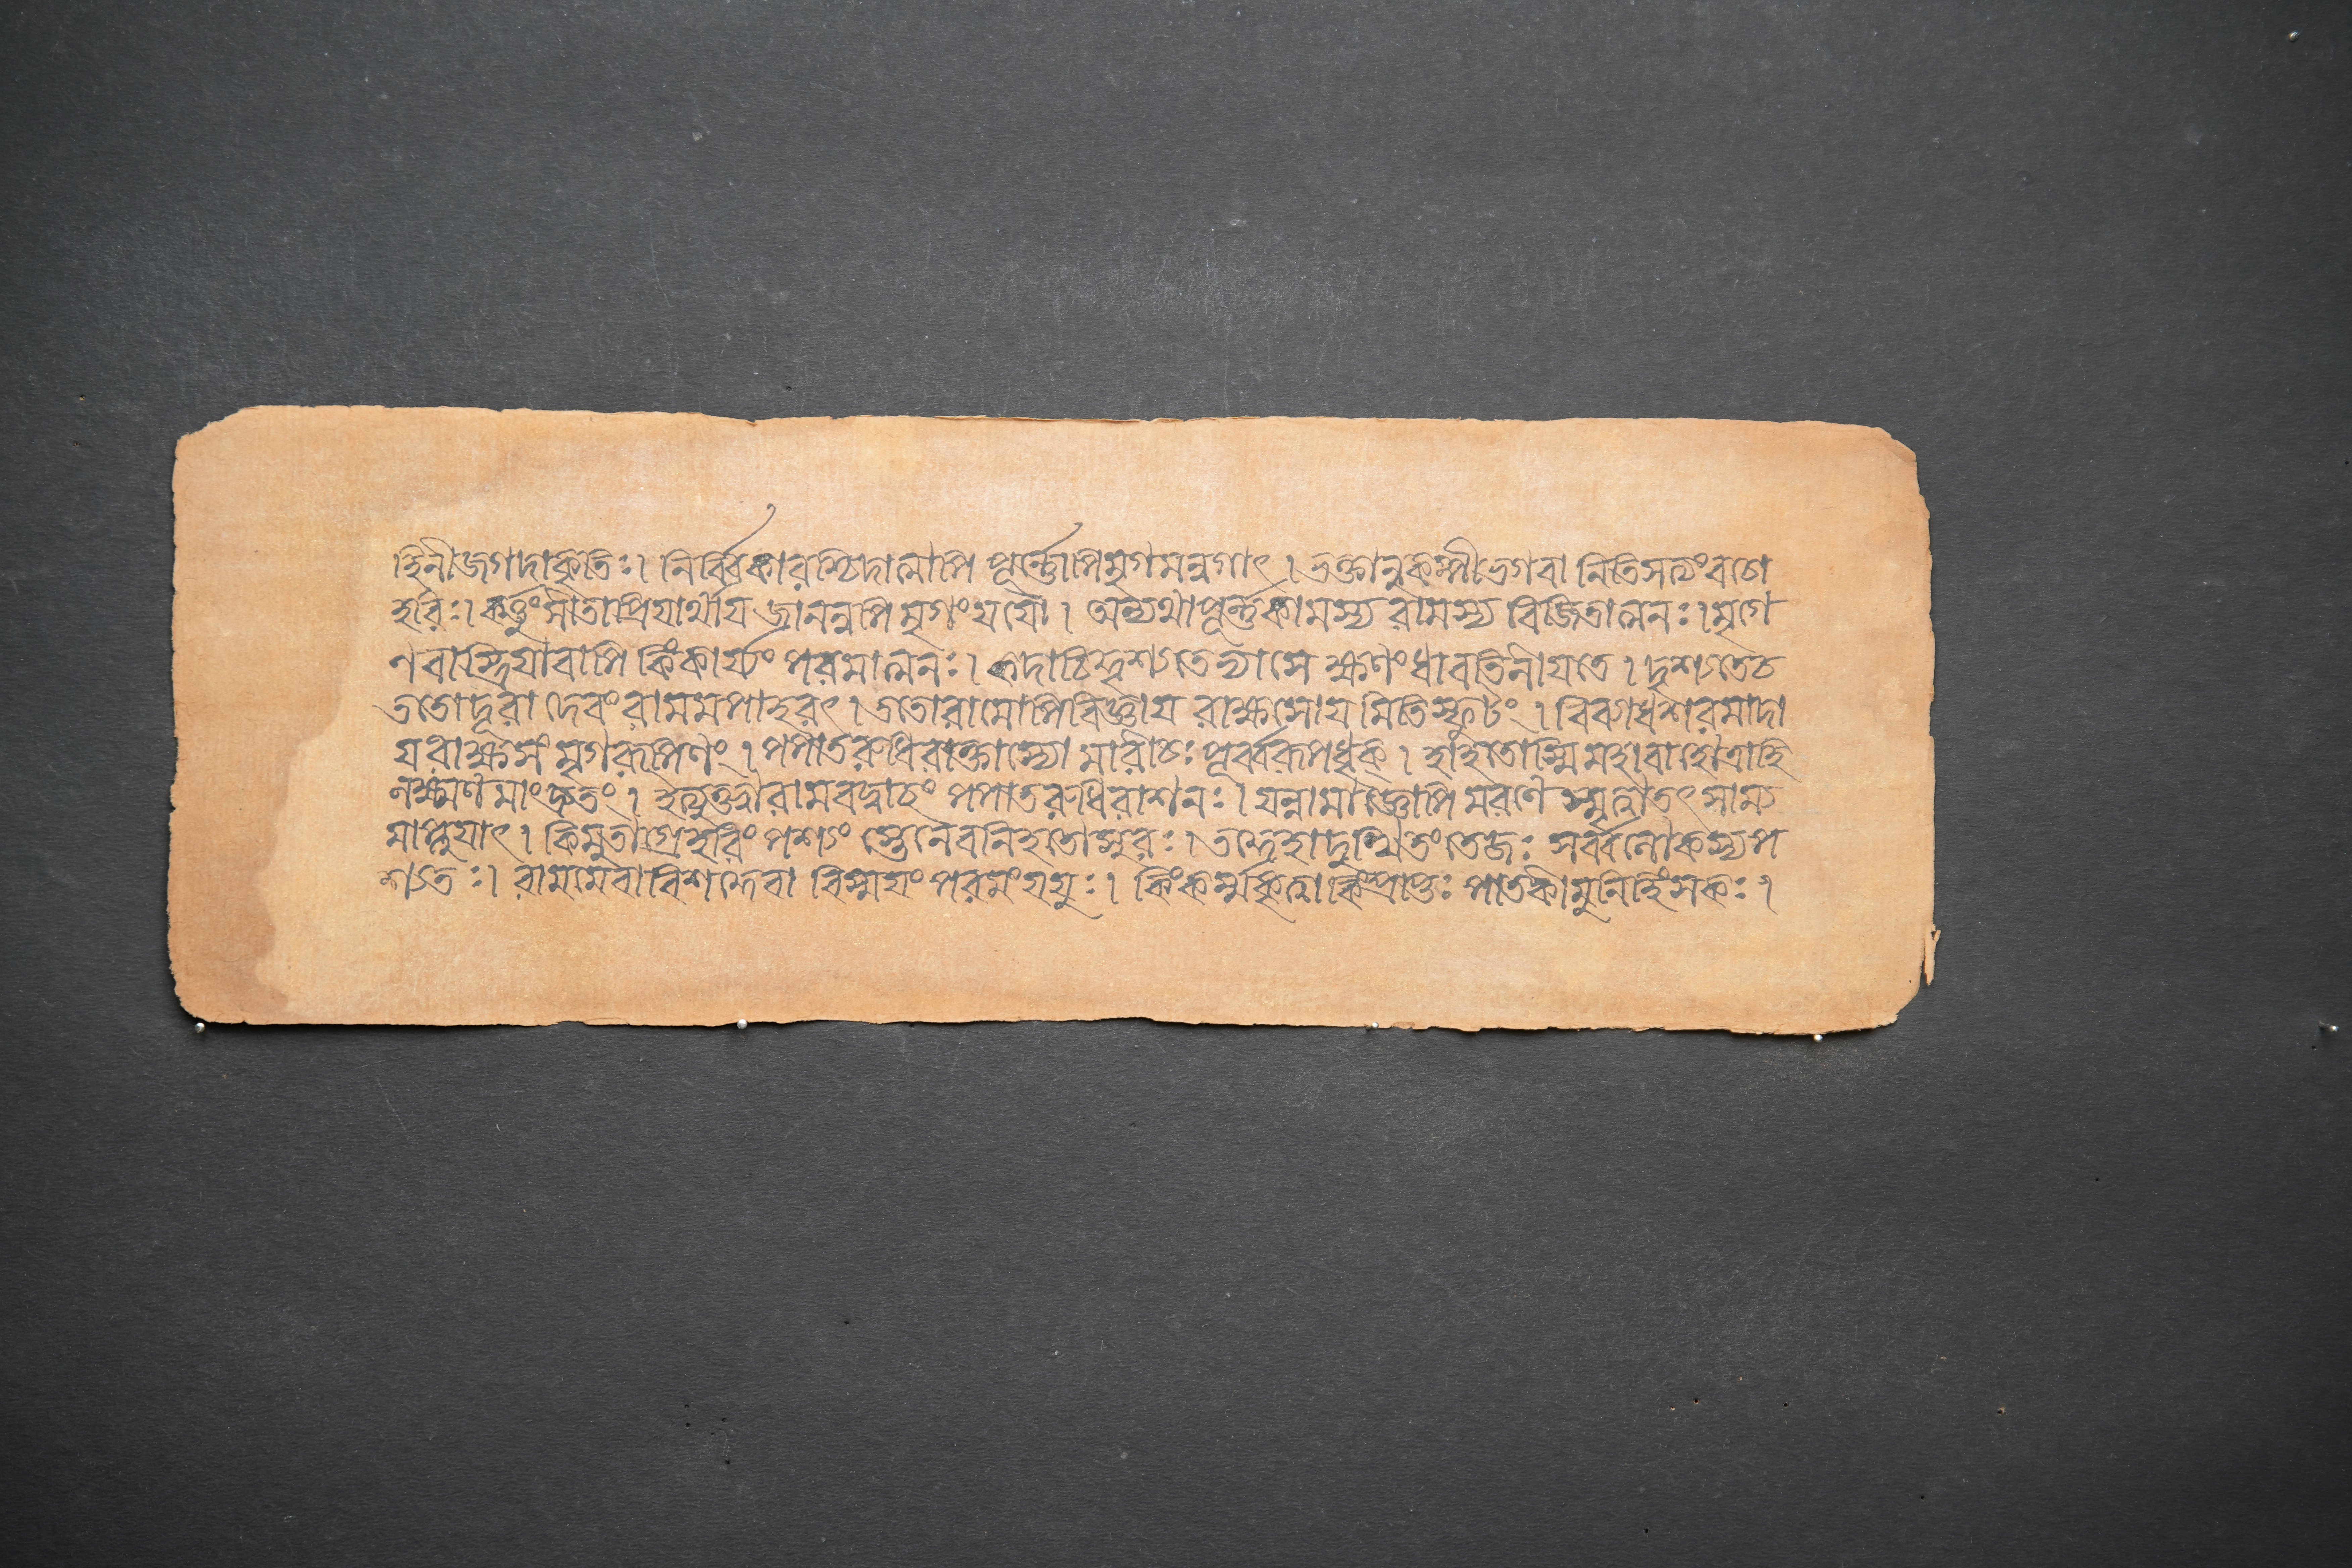 হিনীজগদাকৃতিঃ। নির্ব্বিকারশ্চিদাত্মাপি পূর্ণ্ণোপিমৃগমন্বগাৎ। ভক্তানুকম্পীভগবা নিতিসত্যংবচো
হরিঃ। কর্ত্তুংসীতাপ্রিযার্থায জানন্নপিমৃগংযযৌ। অন্যথাপূর্ণ্ণকামস্য রামস্য বিজিতাত্মনঃ। মৃগে
ণবাস্ত্রিযাবাপি কিংকার্য্যং পরমাত্মনঃ। কদাচিদ্দৃশ্যতেভ্যাসে ক্ষণংধাবতিলীযতে। দৃশ্যতেচ
ততোদূরা দেবংরামমপাহরৎ। ততোরামোপিবিজ্ঞায রাক্ষসোয মিতিস্ফুটং। বিব্যাধশরমাদা
যরাক্ষসং মৃগরূপিণং। পপাতরুধিরাক্তাস্যো মারীচঃ পূর্ব্বরূপধৃক্। হাহতোস্মিমহাবাহোত্রাহি
লক্ষ্মণমাংদ্রুতং। ইত্যুক্ত্বারামবদ্বাচং পপাতরুধিরাশনঃ। যন্নামাজ্ঞোপিমরণে স্মৃত্বাতৎসাম্য
মাপ্নুযাৎ। কিমুতাগ্রেহরিংপশ্যং স্তেনৈবনিহতোসুরঃ। তদ্দেহাদুত্থিতংতেজঃ সর্ব্বলোকস্যপ
শ্যতঃ। রামমেবাবিশদ্দেবা বিস্মযং পরমংযযুঃ। কিংকর্ম্মকৃত্বাকিংপ্রাপ্তঃ পাতকীমুনিহিংসকঃ।